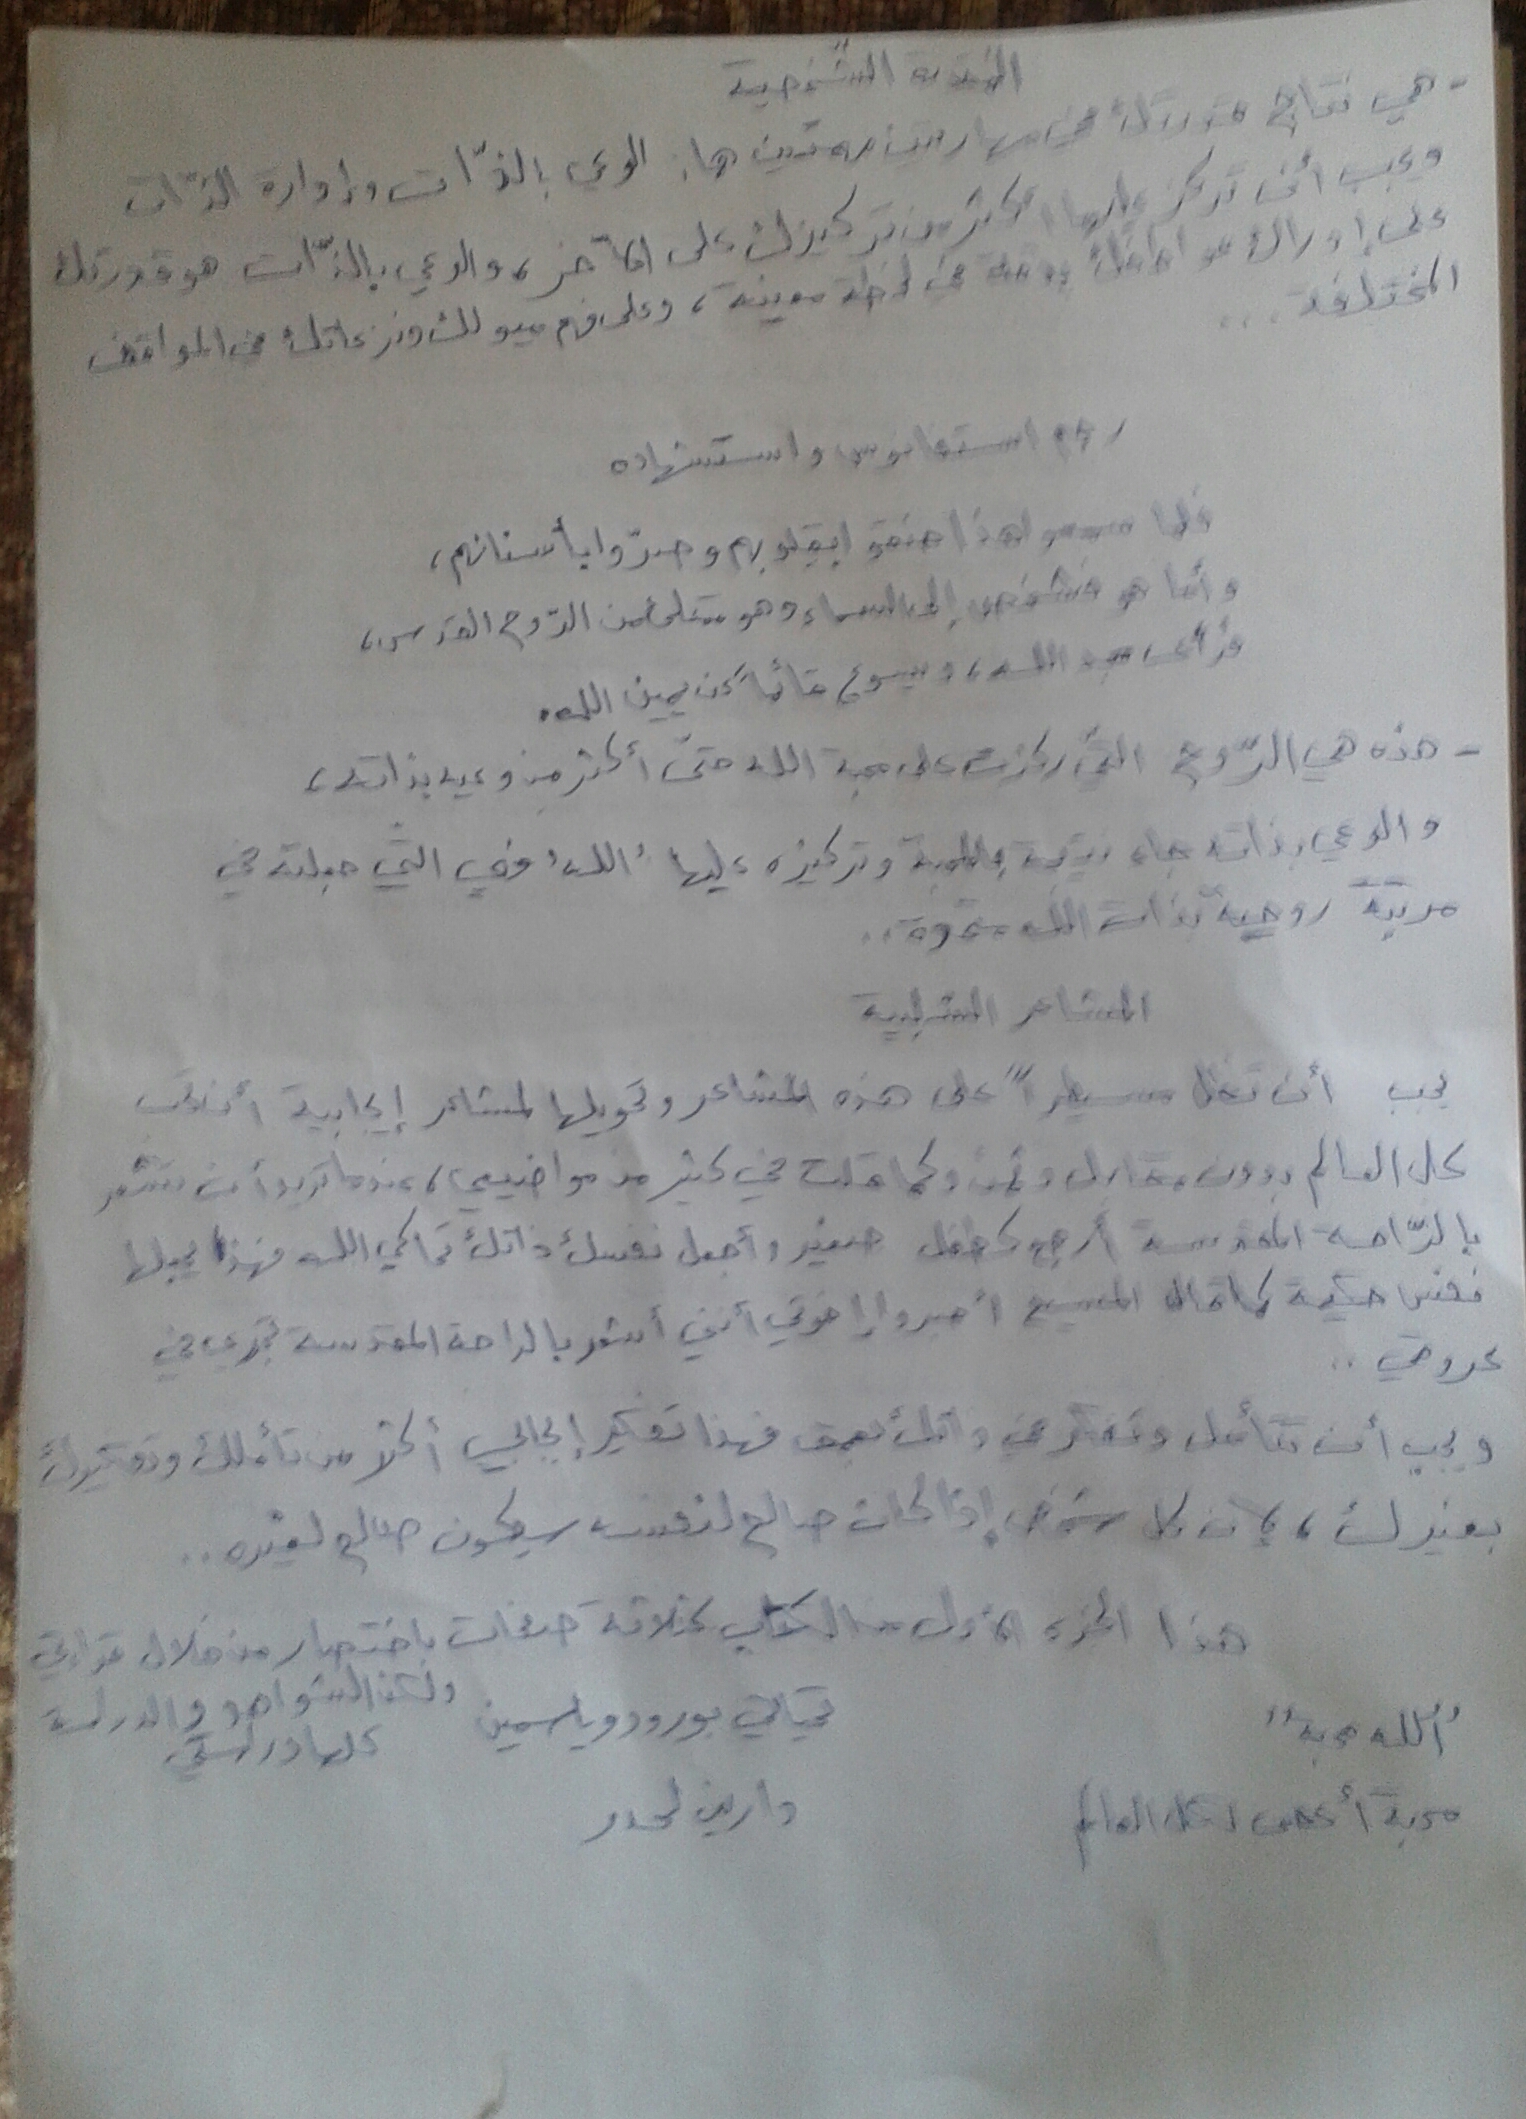 القدرة الشخصية
- هي نتاج قدرتك في مهارتين مهمتين هما: الوعي بالذّات وإدارة الذّات
ويجب أن تركز عليها أكثر من تركيزك على الآخر، والوعي بالذّات هو قدرتك
على إدراك عواطفك بدقة في لحظة معينة، وعلى فهم ميولك ونزعاتك في المواقف
المختلفة...
رجم استفانوس واستشهاده
فلما سمعوا هذا حنقوا بقلوبهم وصرّوا بأسنانهم،
وأما هو فشخص إلى السماء وهو ممتلئ من الرّوح القدس،
فرأى مجد الله، ويسوع قائماً عن يمين الله.
- هذه هي الرّوح التي ركزت على محبة الله حتّى أكثر من وعيه بذاته،
والوعي بذاته جاء نتيجة المحبة وتركيزه عليها "الله" فهي التي جعلته في
مرتبة روحية بذات الله
المشاعر السّلبية
يجب أن تظل مسيطراً على هذه المشاعر وتحويلها لمشاعر إيجابية أن تحب
كل العالم بدون مقابل وثمن وكما قلت في كثير من مواضيعي، عندما تريد أن تشعر
بالرّاحة المقدسة أرجع كطفل صغير وأجعل نفسك ذاتك تحاكي الله فهذا يجعلها
نفس حكيمة كما قال المسيح يا إخوتي أنني أشعر بالراحة المقدسة تجري في
عروقي..
ويجب أن تتأمل وتفكر في ذاتك بعمق فهذا تفكير إيجابي أكثر من تأملك وتفكيرك
بغيرك، لأن كل شخص إذا كان صالح لنفسه سيكون صالح لغيره..
هذا الجزء الأول من الكتاب بثلاثة صفحات باختصار من خلال قراءتي
ولكن الشواهد والدراسة
كلها دراستي
"الله محبة" تحياتي بورود وياسمين
محبة أعطي لكل العالم دارين